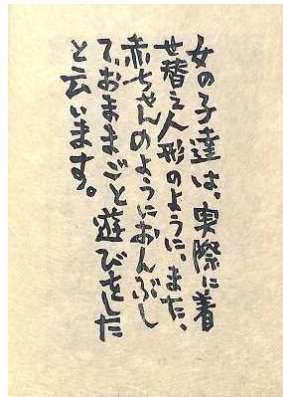 女の子達は、実際に着
せ替え人形のように、また、
赤ちゃんのようにおんぶし
て、おままごと遊びをした
と云います。